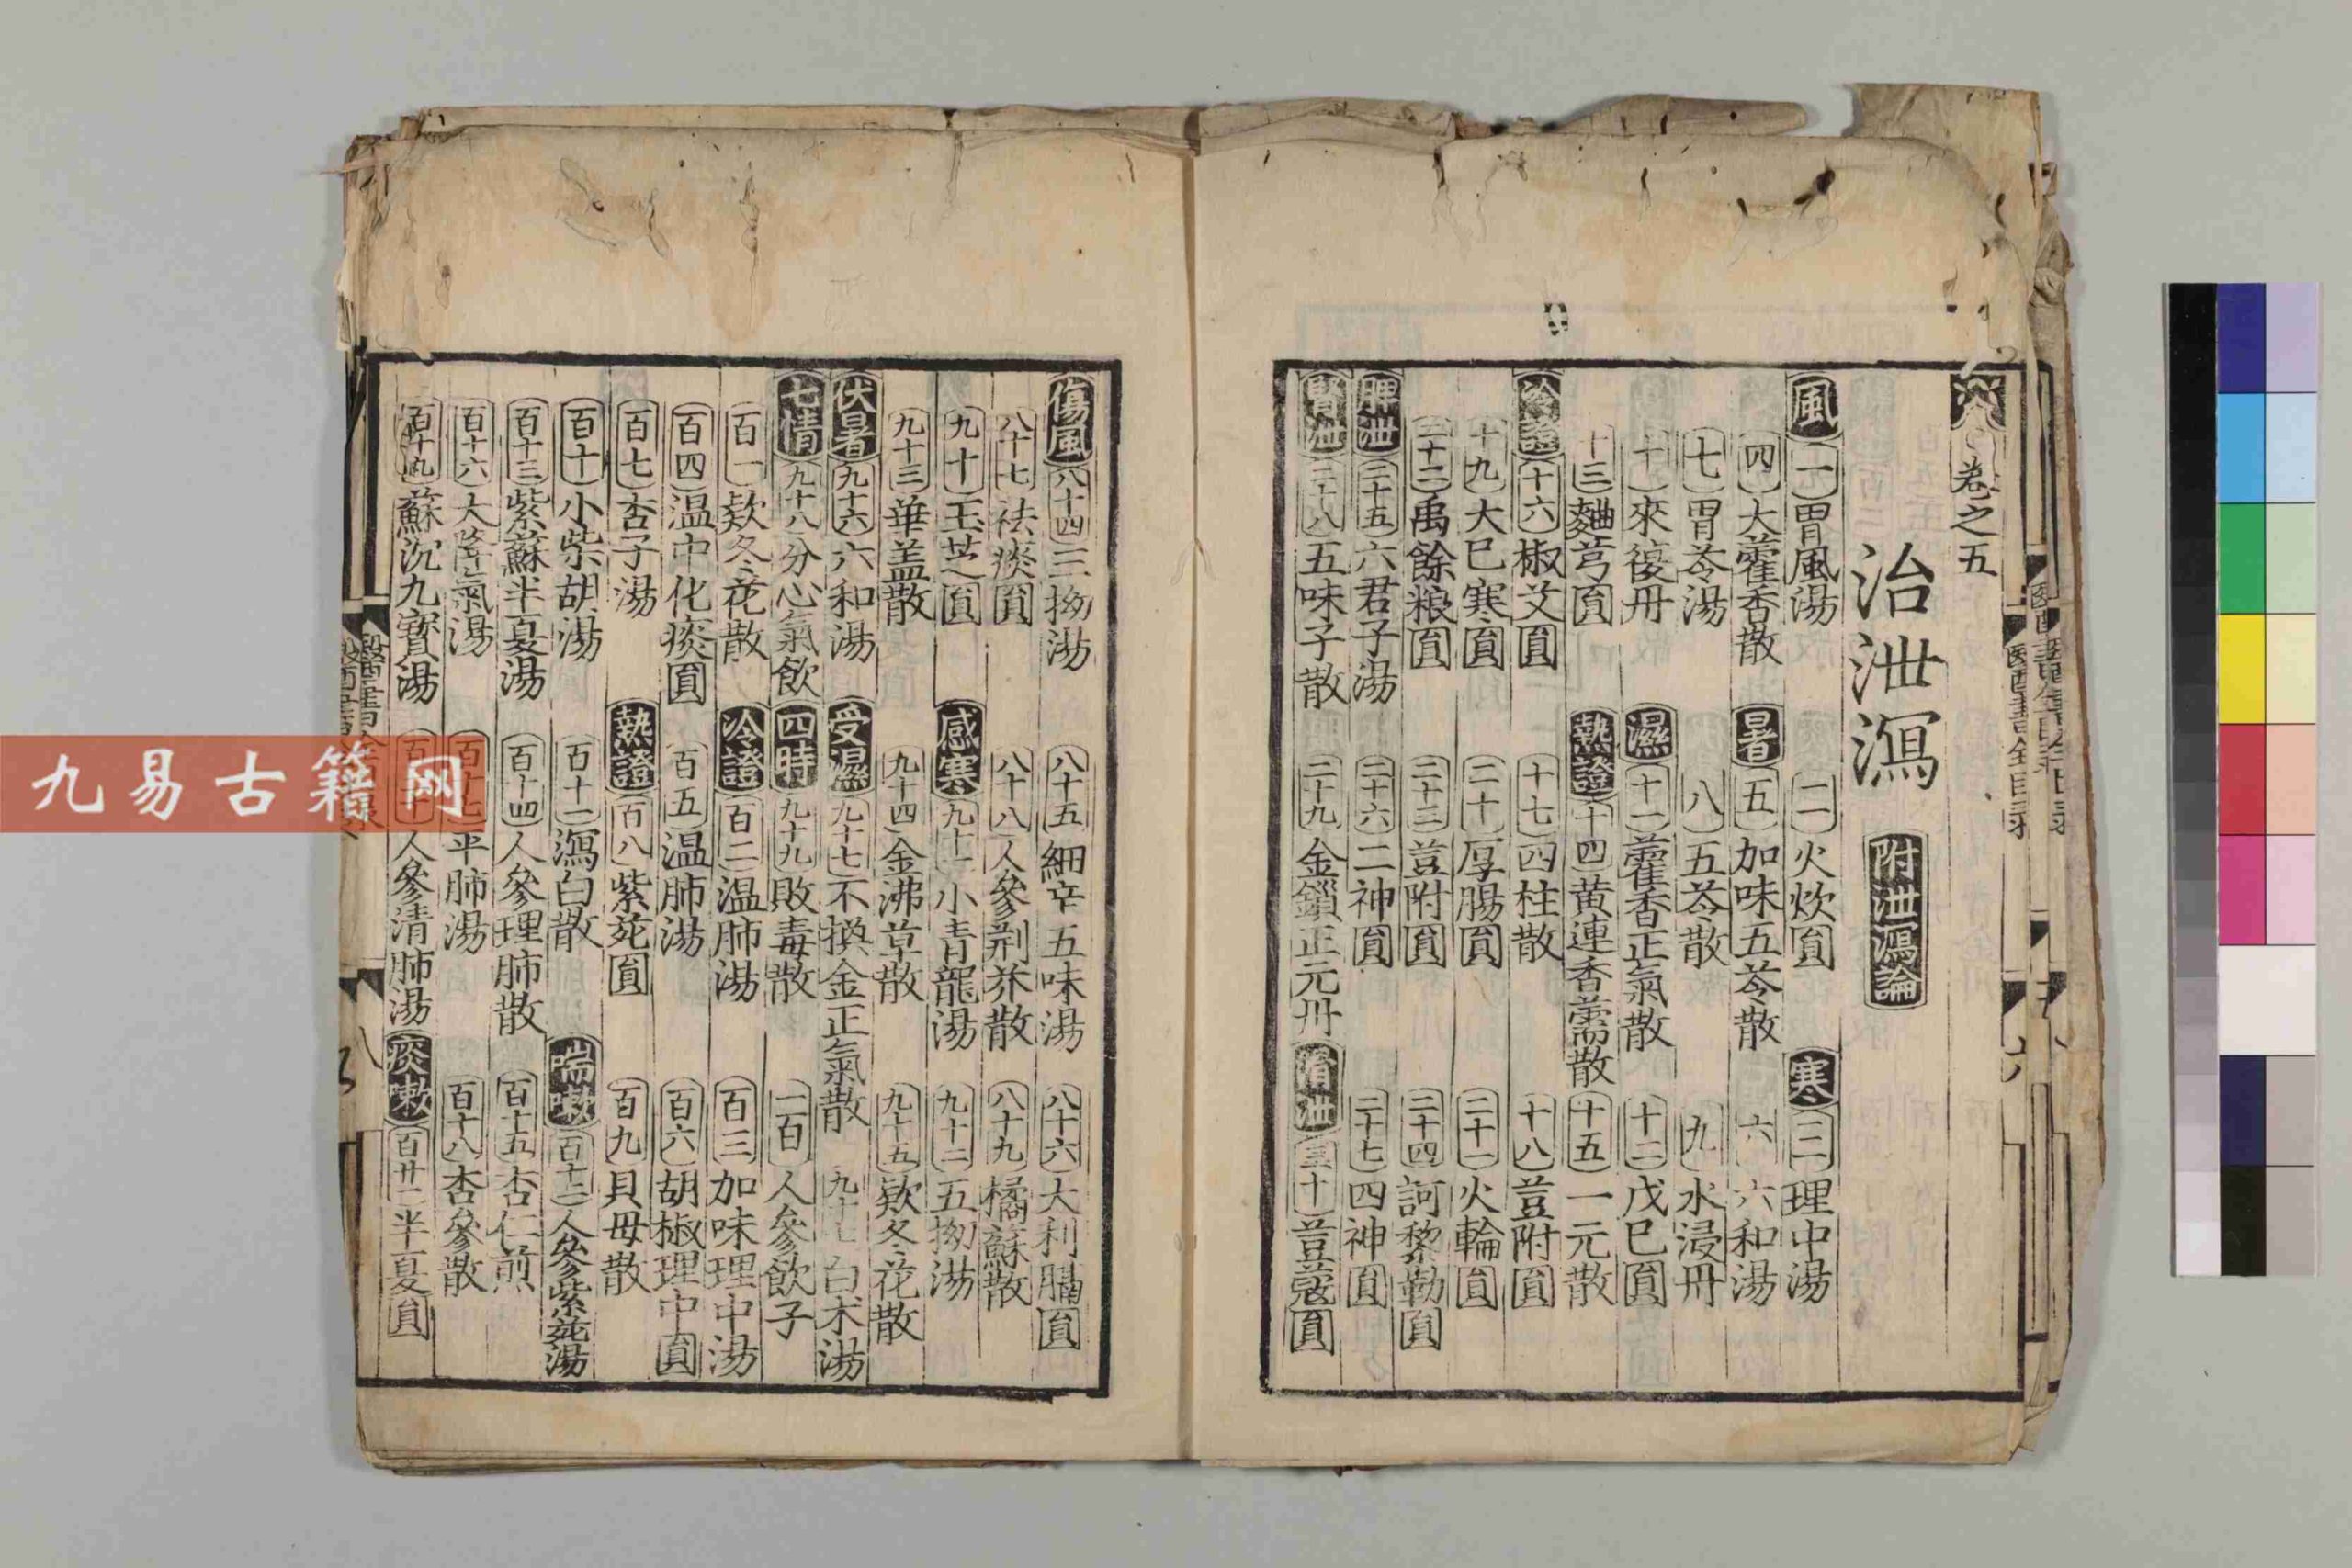 卷之五
治泄瀉 附泄瀉論
風 一 胃風湯 二 火炊圓 寒 三 理中湯
四 大藿香散 暑 五 加味五苓散 六 六和湯
七 胃苓湯 八 五苓散 九 水浸丹
十 來復丹 濕 十一 藿香正氣散 十二 戊巳圓
十三 麯芎圓 熱證 十四 黃連香薷散 十五 一元散
冷證 十六 椒艾圓 十七 四柱散 十八 荳附圓
十九 大巳寒圓 二十 厚腸圓 二十一 火輪圓
二十二 禹餘粮圓 二十三 荳附圓 二十四 訶黎勒圓
脾泄 二十五 六君子湯 二十六 二神圓 二十七 四神圓
腎泄 二十八 五味子散 二十九 金鎖正元丹 滑泄 三十 荳蔻圓
傷風 八十四 三拗湯 八十五 細辛五味湯 八十六 大利膈圓
八十七 祛痰圓 八十八 人參荆芥散 八十九 橘蘇散
九十 玉芝圓 感寒 九十一 小青龍湯 九十二 五拗湯
九十三 華盖散 九十四 金沸草散 九十五 欵冬花散
伏暑 九十六 六和湯 受濕 九十七 不換金正氣散 九十七 白朮湯
七情 九十八 分心氣飲 四時 九十九 敗毒散 一百 人參飲子
百一 欵冬花散 冷證 百二 温肺湯 百三 加味理中湯
百四 温中化痰圓 百五 温肺湯 百六 胡椒理中圓
百七 杏子湯 熱證 百八 紫菀圓 百九 貝母散
百十 小柴胡湯 百十一 瀉白散 喘嗽 百十二 人參紫菀湯
百十三 紫蘇半夏湯 百十四 人參理肺散 百十五 杏仁煎
百十六 大降氣湯 百十七 平肺湯 百十八 杏參散
百十九 蘇沉九寳湯 百二十 人參清肺湯 痰嗽 百廿一 半夏圓
九易古籍网